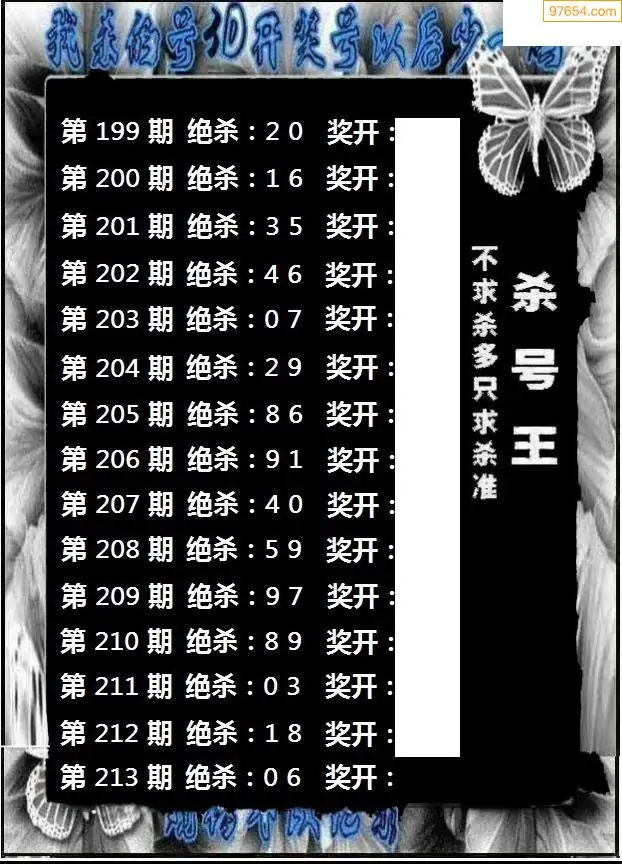 97654.com
我杀的号3D开奖号以后少
第 199 期 绝杀:2 0 奖开:
第 200 期 绝杀:1 6 奖开:
第 201 期 绝杀:3 5 奖开:
第 202 期 绝杀:4 6 奖开:
第 203 期 绝杀:0 7 奖开:
第 204 期 绝杀:2 9 奖开:
第 205 期 绝杀:8 6 奖开:
第 206 期 绝杀:9 1 奖开:
第 207 期 绝杀:4 0 奖开:
第 208 期 绝杀:5 9 奖开:
第 209 期 绝杀:9 7 奖开:
第 210 期 绝杀:8 9 奖开:
第 211 期 绝杀:0 3 奖开:
第 212 期 绝杀:1 8 奖开:
第 213 期 绝杀:0 6 奖开:
杀号王
不求杀多只求杀准